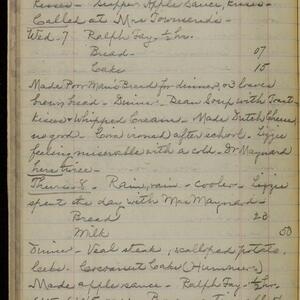 Kisses - Supper, Apple Sauce, Kisses -
Called at Mrs Townsends -
Wed - 7 Ralph Fay - ½ hr.
Bread - 07
Cake 15
Made Poor Man's Bread for dinner, & 3 loaves
brown bread - Dinner - Bean Soup with Toast -
Kisses & Whipped Cream. Made Dutch Cheese,
no good Eva ironed after school. Lizzie
feeling miserable with a cold. Dr Maynard
here twice -
Thurs - 8 - Rain, rain - cooler - Lizzie
spent the day with Mrs Maynard -
Bread 20
Milk 50
Dinner - Veal steak, scalloped potato,
Cocoanut Cake (Hummers)
Made apple sauce - Ralph Fay - ½ hr.